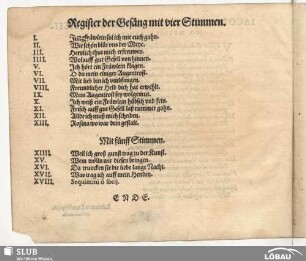 Register der Gesäng mit vier Stimmen.
I. Jungfräwlein sol ich mit euch gahn.
II. Wie schön blüt vns der Meye.
III. Hertzlich thut mich erfrewen.
IIII. Wolauff gut Gesell von hinnen.
V. Ich hört ein Fräwlein klagen.
VI. O du mein einiger Augentrost.
VII. Mit lieb bin ich vmbfangen.
VIII. Freundlicher Heldt dich hat erwehlt.
IX. Mein Augentrost
X. Ich weiß ein Fräwlein hübsch vnd fein.
XI. Frisch auff gut Gesell laß rummer gahn.
XII. Alde ich muß mich scheiden.
XIII. Rosina wo war dein gestalt.
Mit fünff Stimmen.
XIIII. Weil ich groß gunst trag zu der Kunst.
XV. Wem wölln wir diesen bringen.
XVI. Da mucken sie die liebe lange Nacht.
XVII. Was trag ich auff mein Henden.
XVIII. Sequimini ô socij.
ENDE.
SLUB
Wir führen Wissen.
LÖBAU